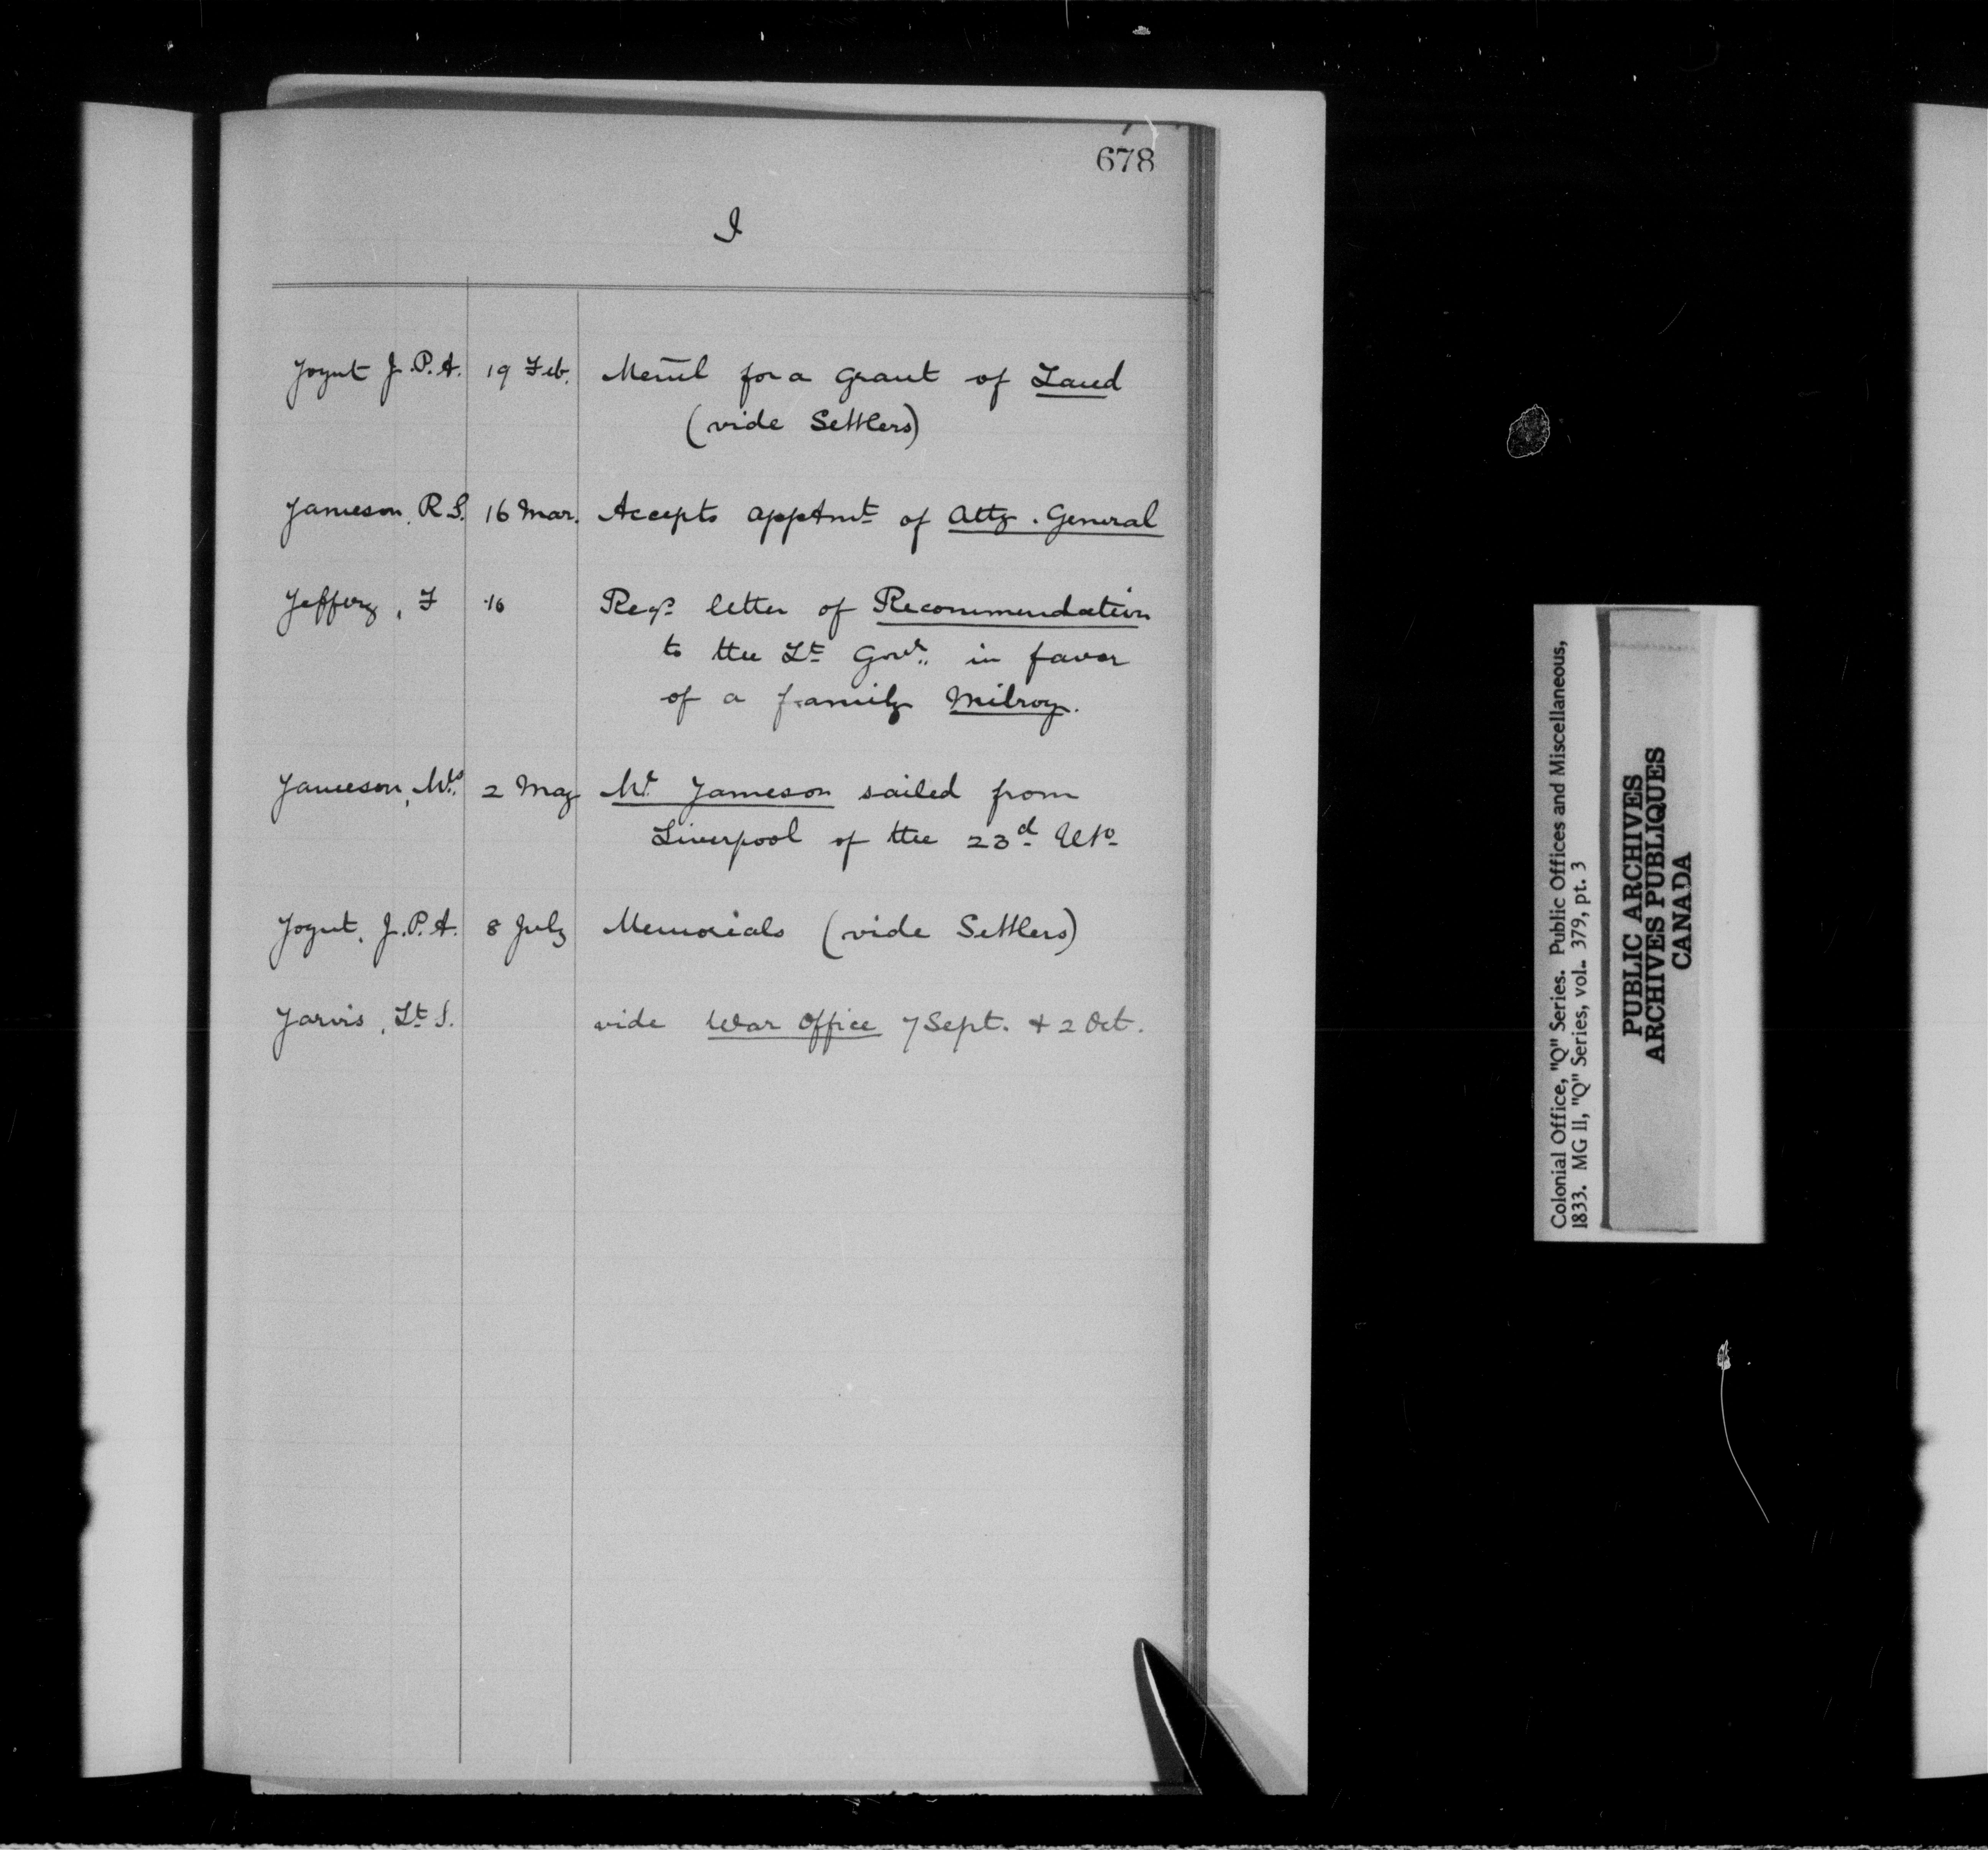 678
J
Joynt J.P.A. 19 Feb. Meml for a grant of Land
(vide Settlers)
Jameson, R.S. 16 Mar. Accepts apptmt of Atty. General
Jeffery, F 16 Reqs. letter of Recommendation
to the Lt Govr. in favor
of a family Milroy.
Jameson, Mrs. 2 May Mr Jameson sailed from
Liverpool of the 23d Ulto
Joynt, J.P.A. 8 July Memorials (vide Settlers)
Jarvis, Lt S. vide War Office 7 Sept. & 2 Oct.
Colonial Office, "Q" Series. Public Offices and Miscellaneous,
1833. MG 11, "Q" Series, vol. 379, pt. 3
PUBLIC ARCHIVES
ARCHIVES PUBLIQUES
CANADA